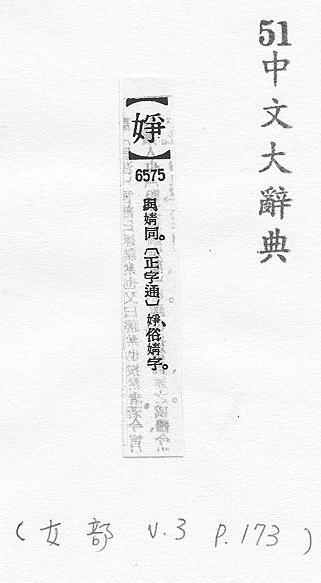 51中文大辭典
【婙】
6575
與婧同。〔正字通〕婙、俗婧字。
(女部 V.3 P.173)